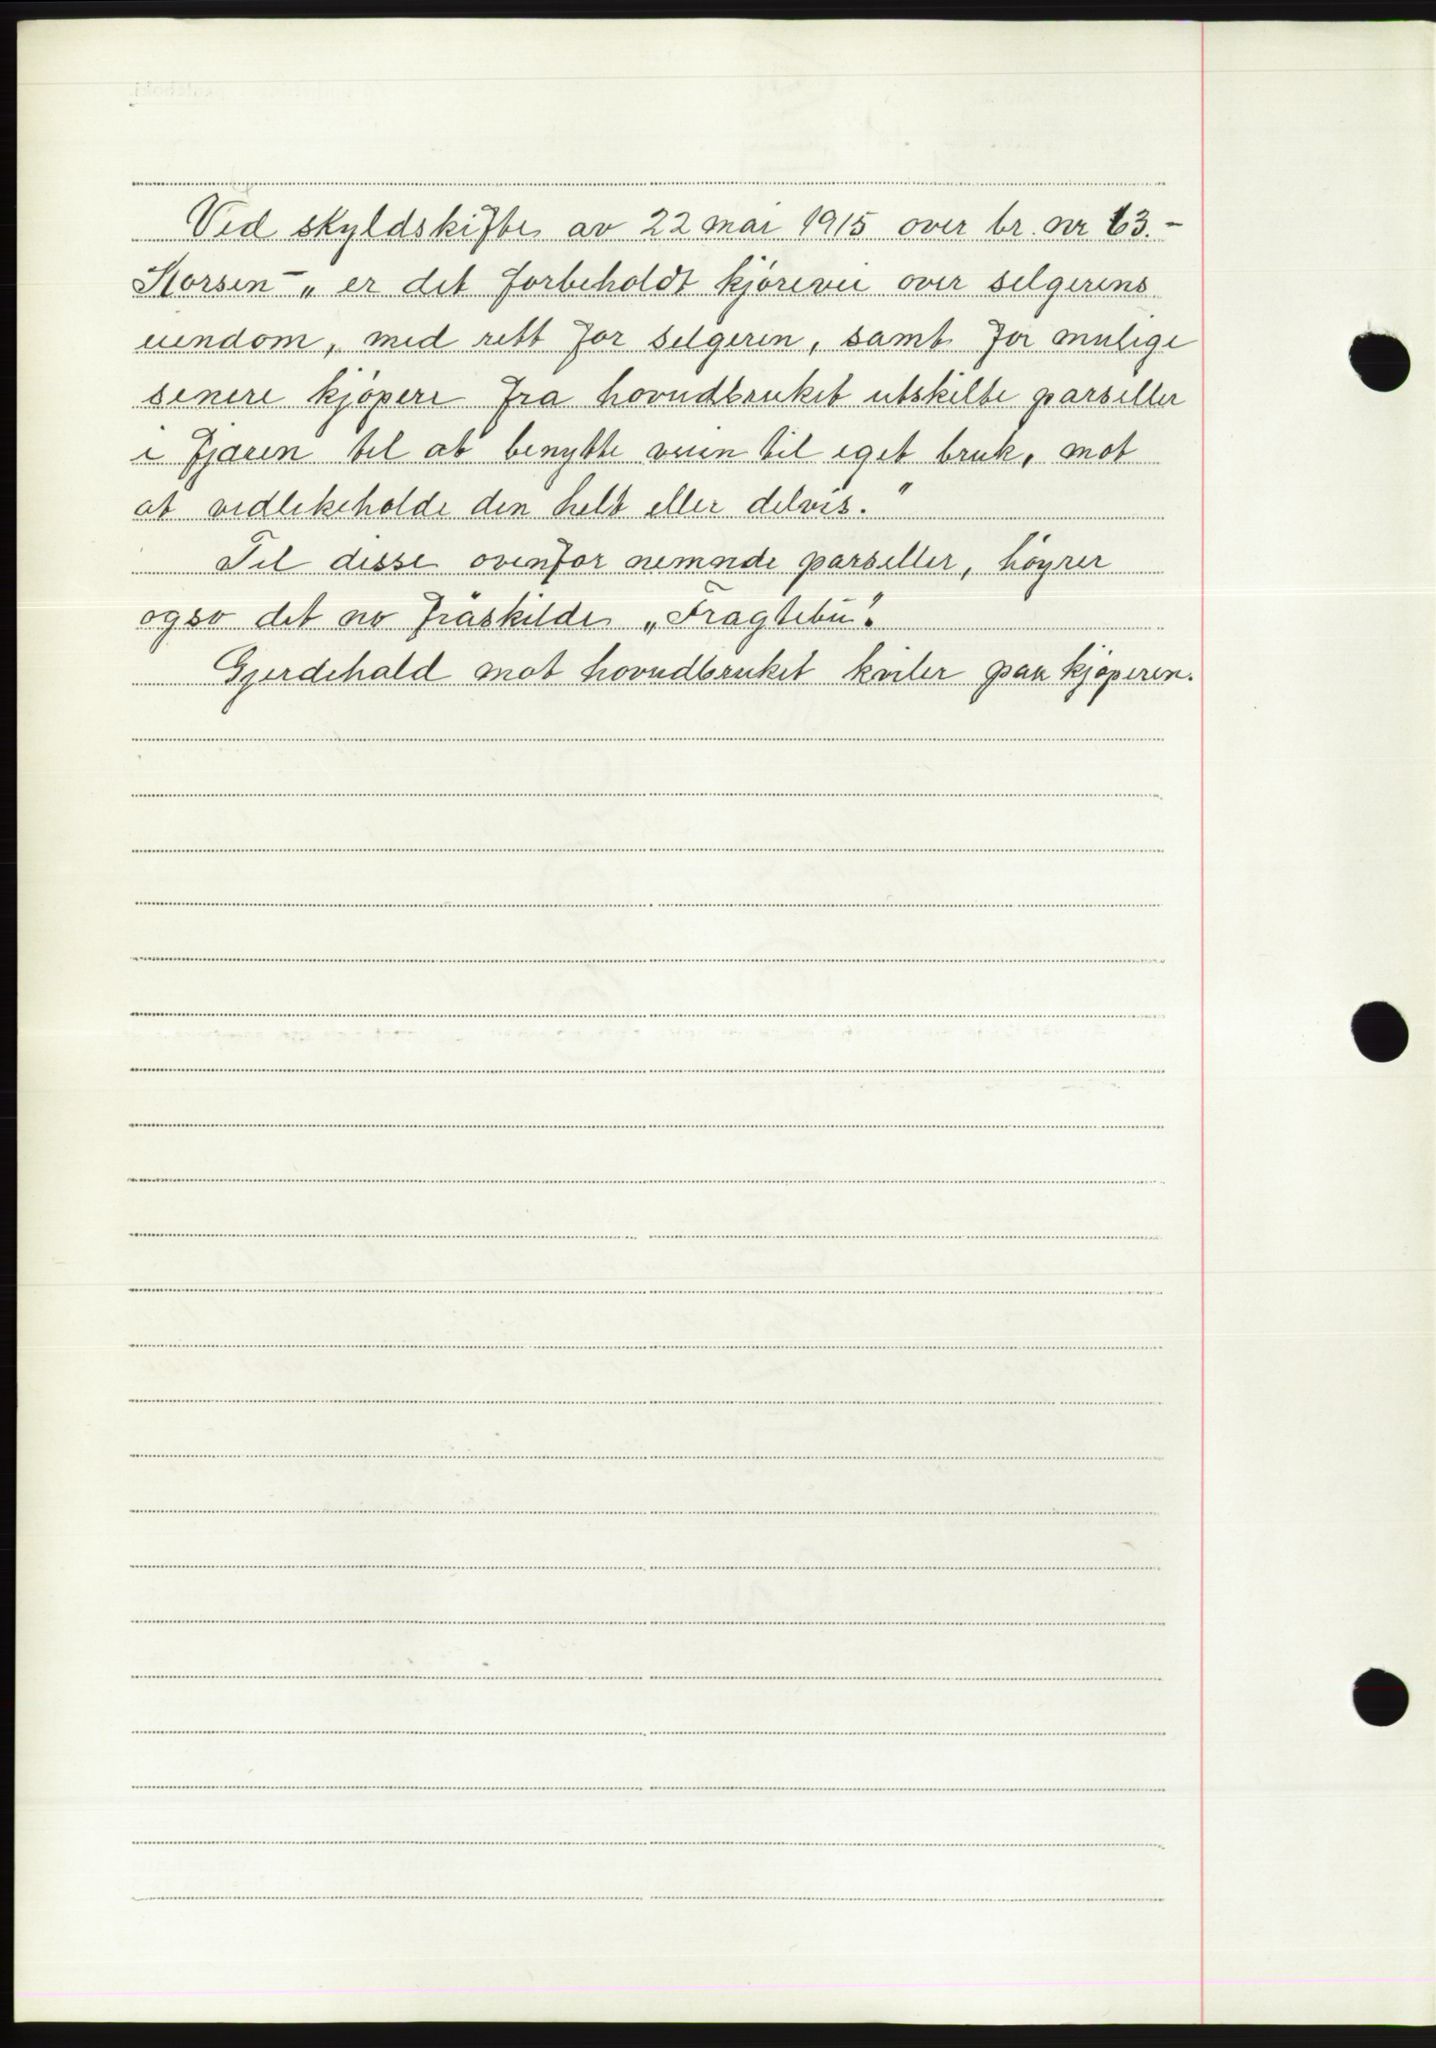 Ved skyldskifte av 22 mai 1915 over br. nr 13. -
Korsen - „ er det forbeholdt kjörevei over selgerens
eiendom, med rett for selgeren, samt for mulige
senere kjöpere fra hovudbruket utskilte parseller
i fjæren til at benytte veien til eget bruk, mot
at vedlikeholde den helt eller delvis."
Til disse ovenfor nemnde parseller, höyrer
ogso det no fråskilde „Fragtebu".
Gjerdehald mot hovudbruket kviler paa kjöperen.